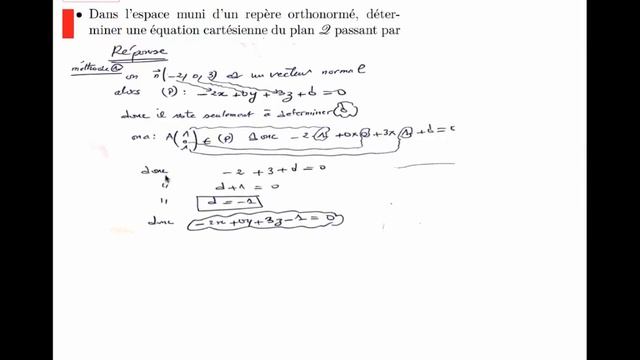 • Dans l'espace muni d'un repère orthonormé, déter-
miner une équation cartésienne du plan 𝒬 passant par
Réponse
méthode ①
on n⃗(-2, 0, 3) est un vecteur normal
alors (P): -2x + 0y + 3z + d = 0
donc il reste seulement à determiner d
on a: A(1 0 1) ∈ (P) donc -2×1 + 0×0 + 3×1 + d = 0
donc -2 + 3 + d = 0
" d + 1 = 0
" d = -1
donc -2x + 0y + 3z - 1 = 0